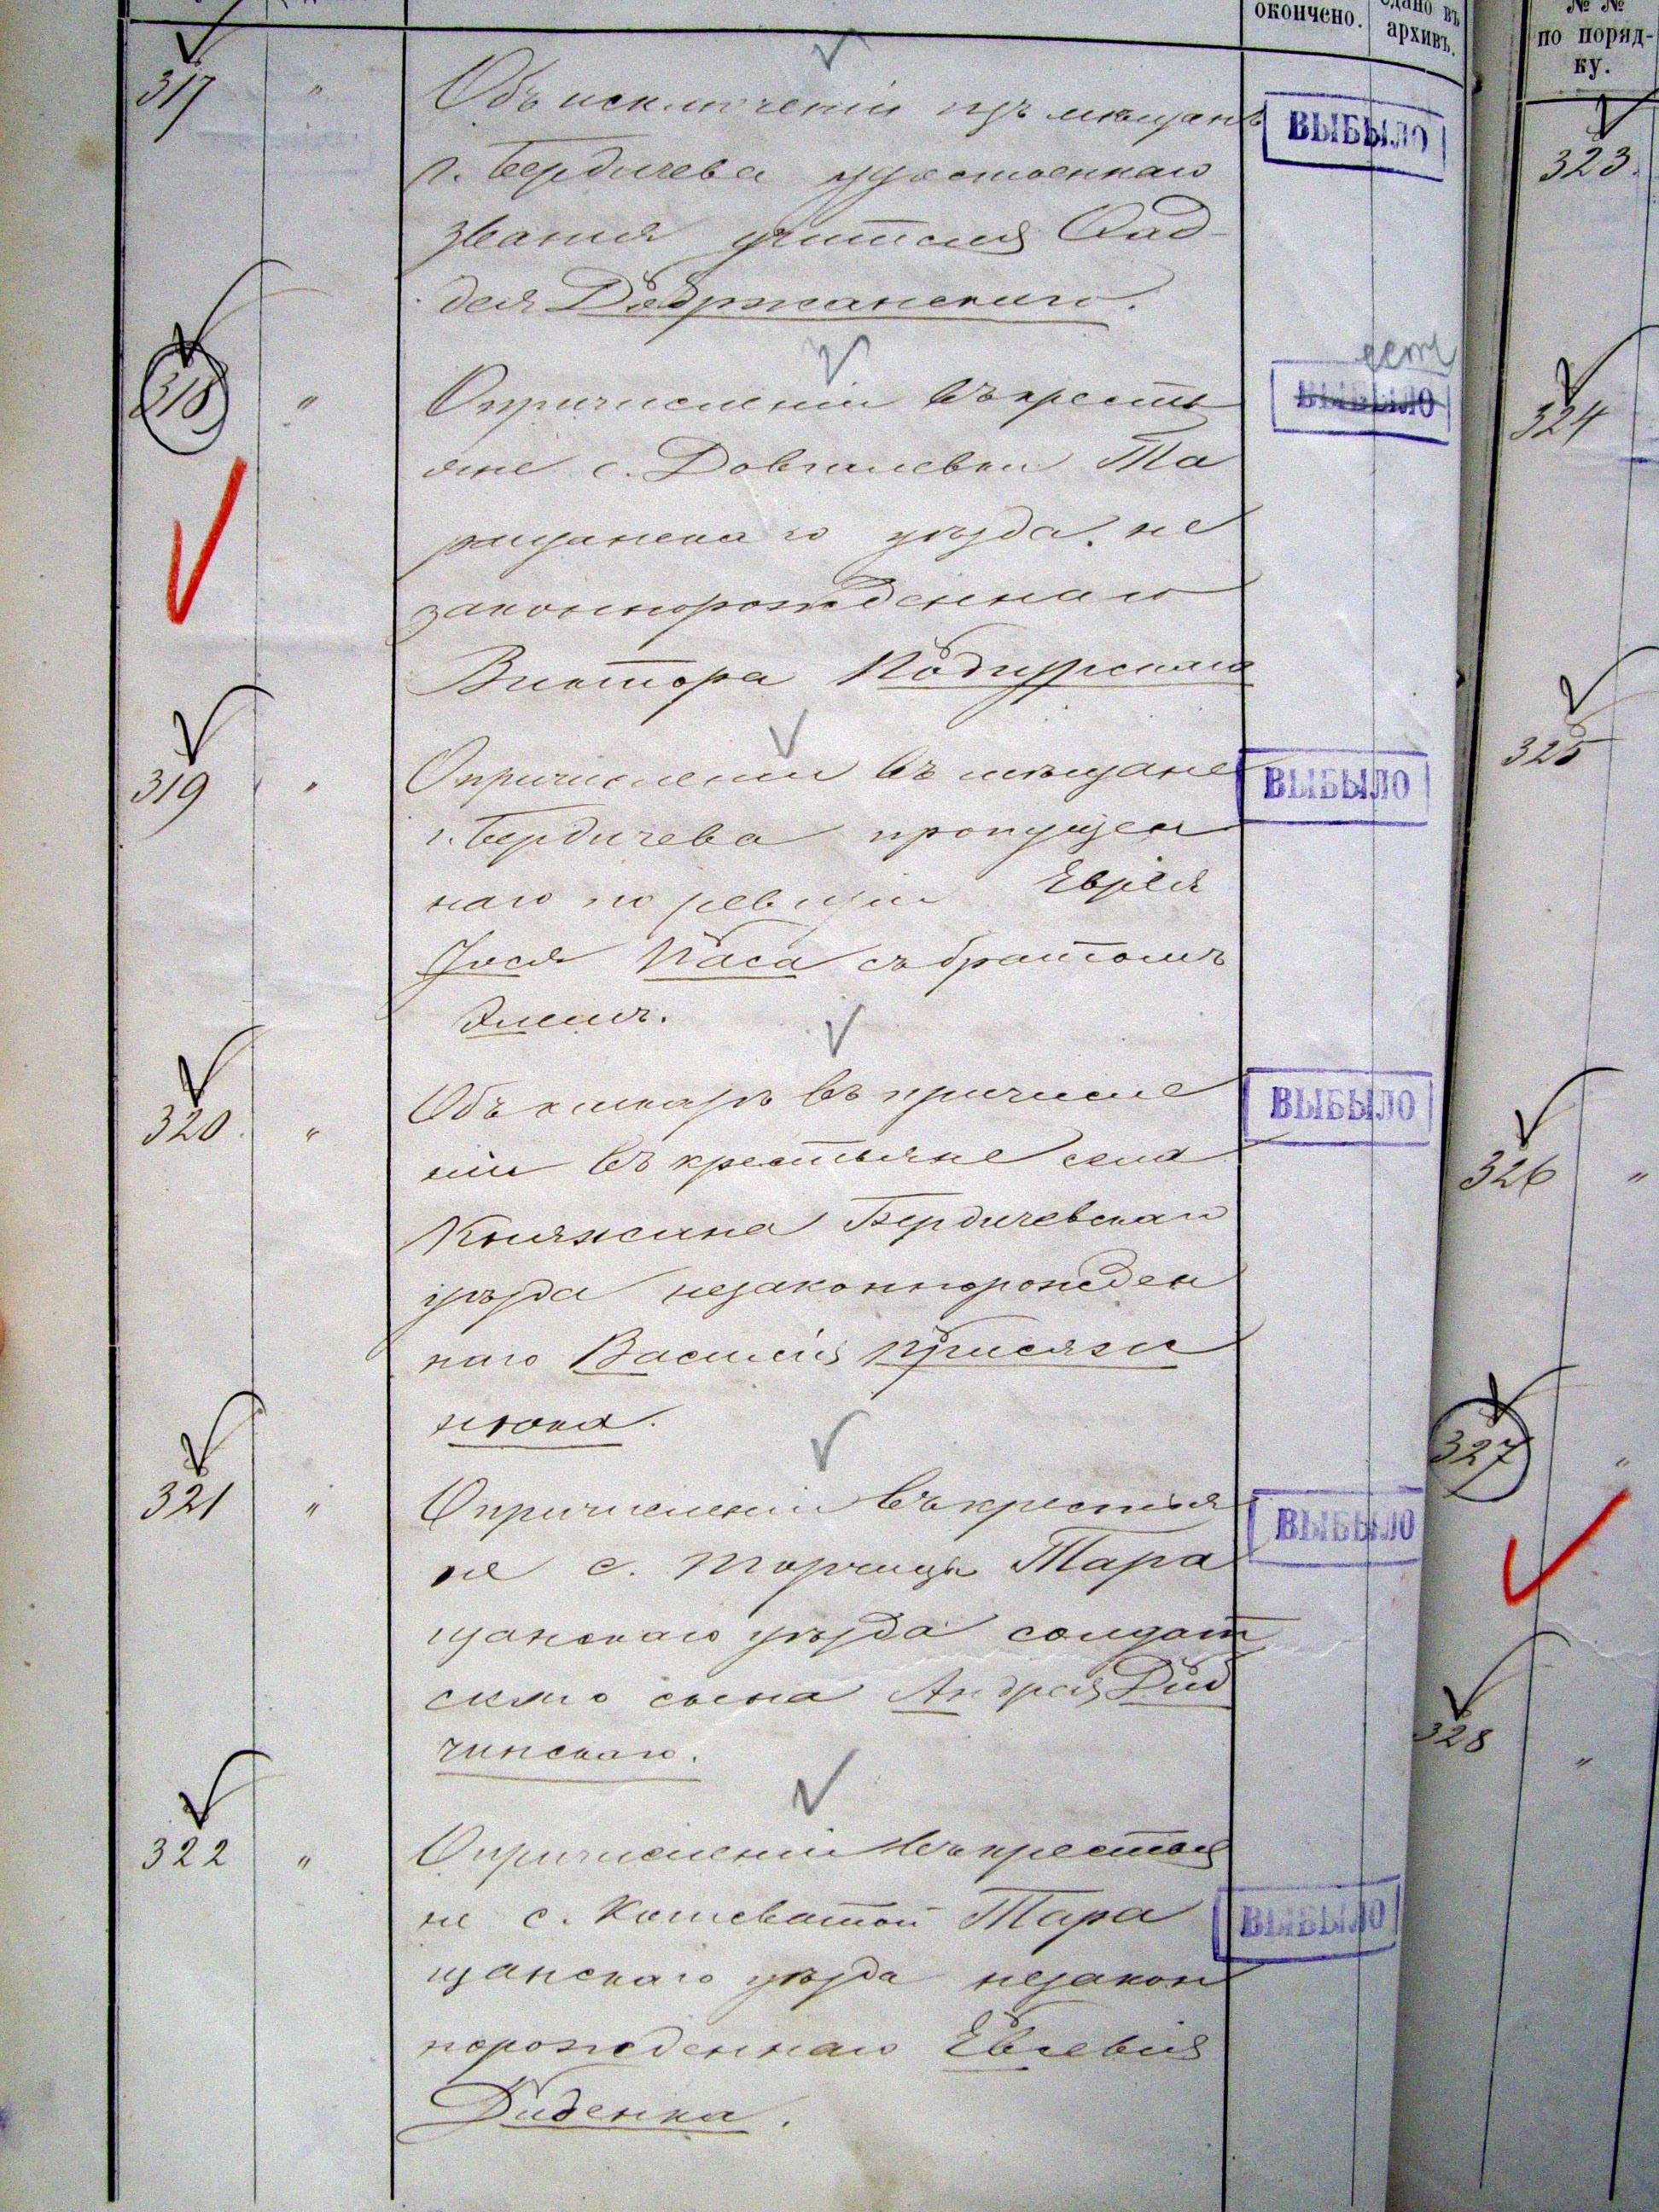 окончено.
сдано въ
архивъ.
№ №
по поряд-
ку.
317 "
Объ исключеніи изъ мѣщанъ
г. Бердичева удостоеннаго
званія учителя Фад-
дея Добржанскаго.
ВЫБЫЛО
318 "
О причисленіи въ кресть
яне с. Довгалевки Та
ращанскаго уѣзда не
законнорожденнаго
Виктора
есть
ВЫБЫЛО
319 "
О причисленіи въ мѣщане
г. Бердичева пропущен
наго по ревизіи Еврея
Паса съ братомъ
ВЫБЫЛО
320. "
Объ отказѣ въ причисле
ніи въ крестьяне села
Княжина Бердичевскаго
уѣзда незаконнорожден
наго Василія Присяж
нюка.
ВЫБЫЛО
321 "
О причисленіи въ крестья
не с. Торчицы Тара
щанскаго уѣзда солдат
скаго сына Андрея Дид
чинскаго.
ВЫБЫЛО
322 "
О причисленіи въ крестья
не с. Кошеватой Тара
щанскаго уѣзда незакон
норожденнаго Евсевія
Диденка.
ВЫБЫЛО
323.
324
325
326 "
327 "
328 "